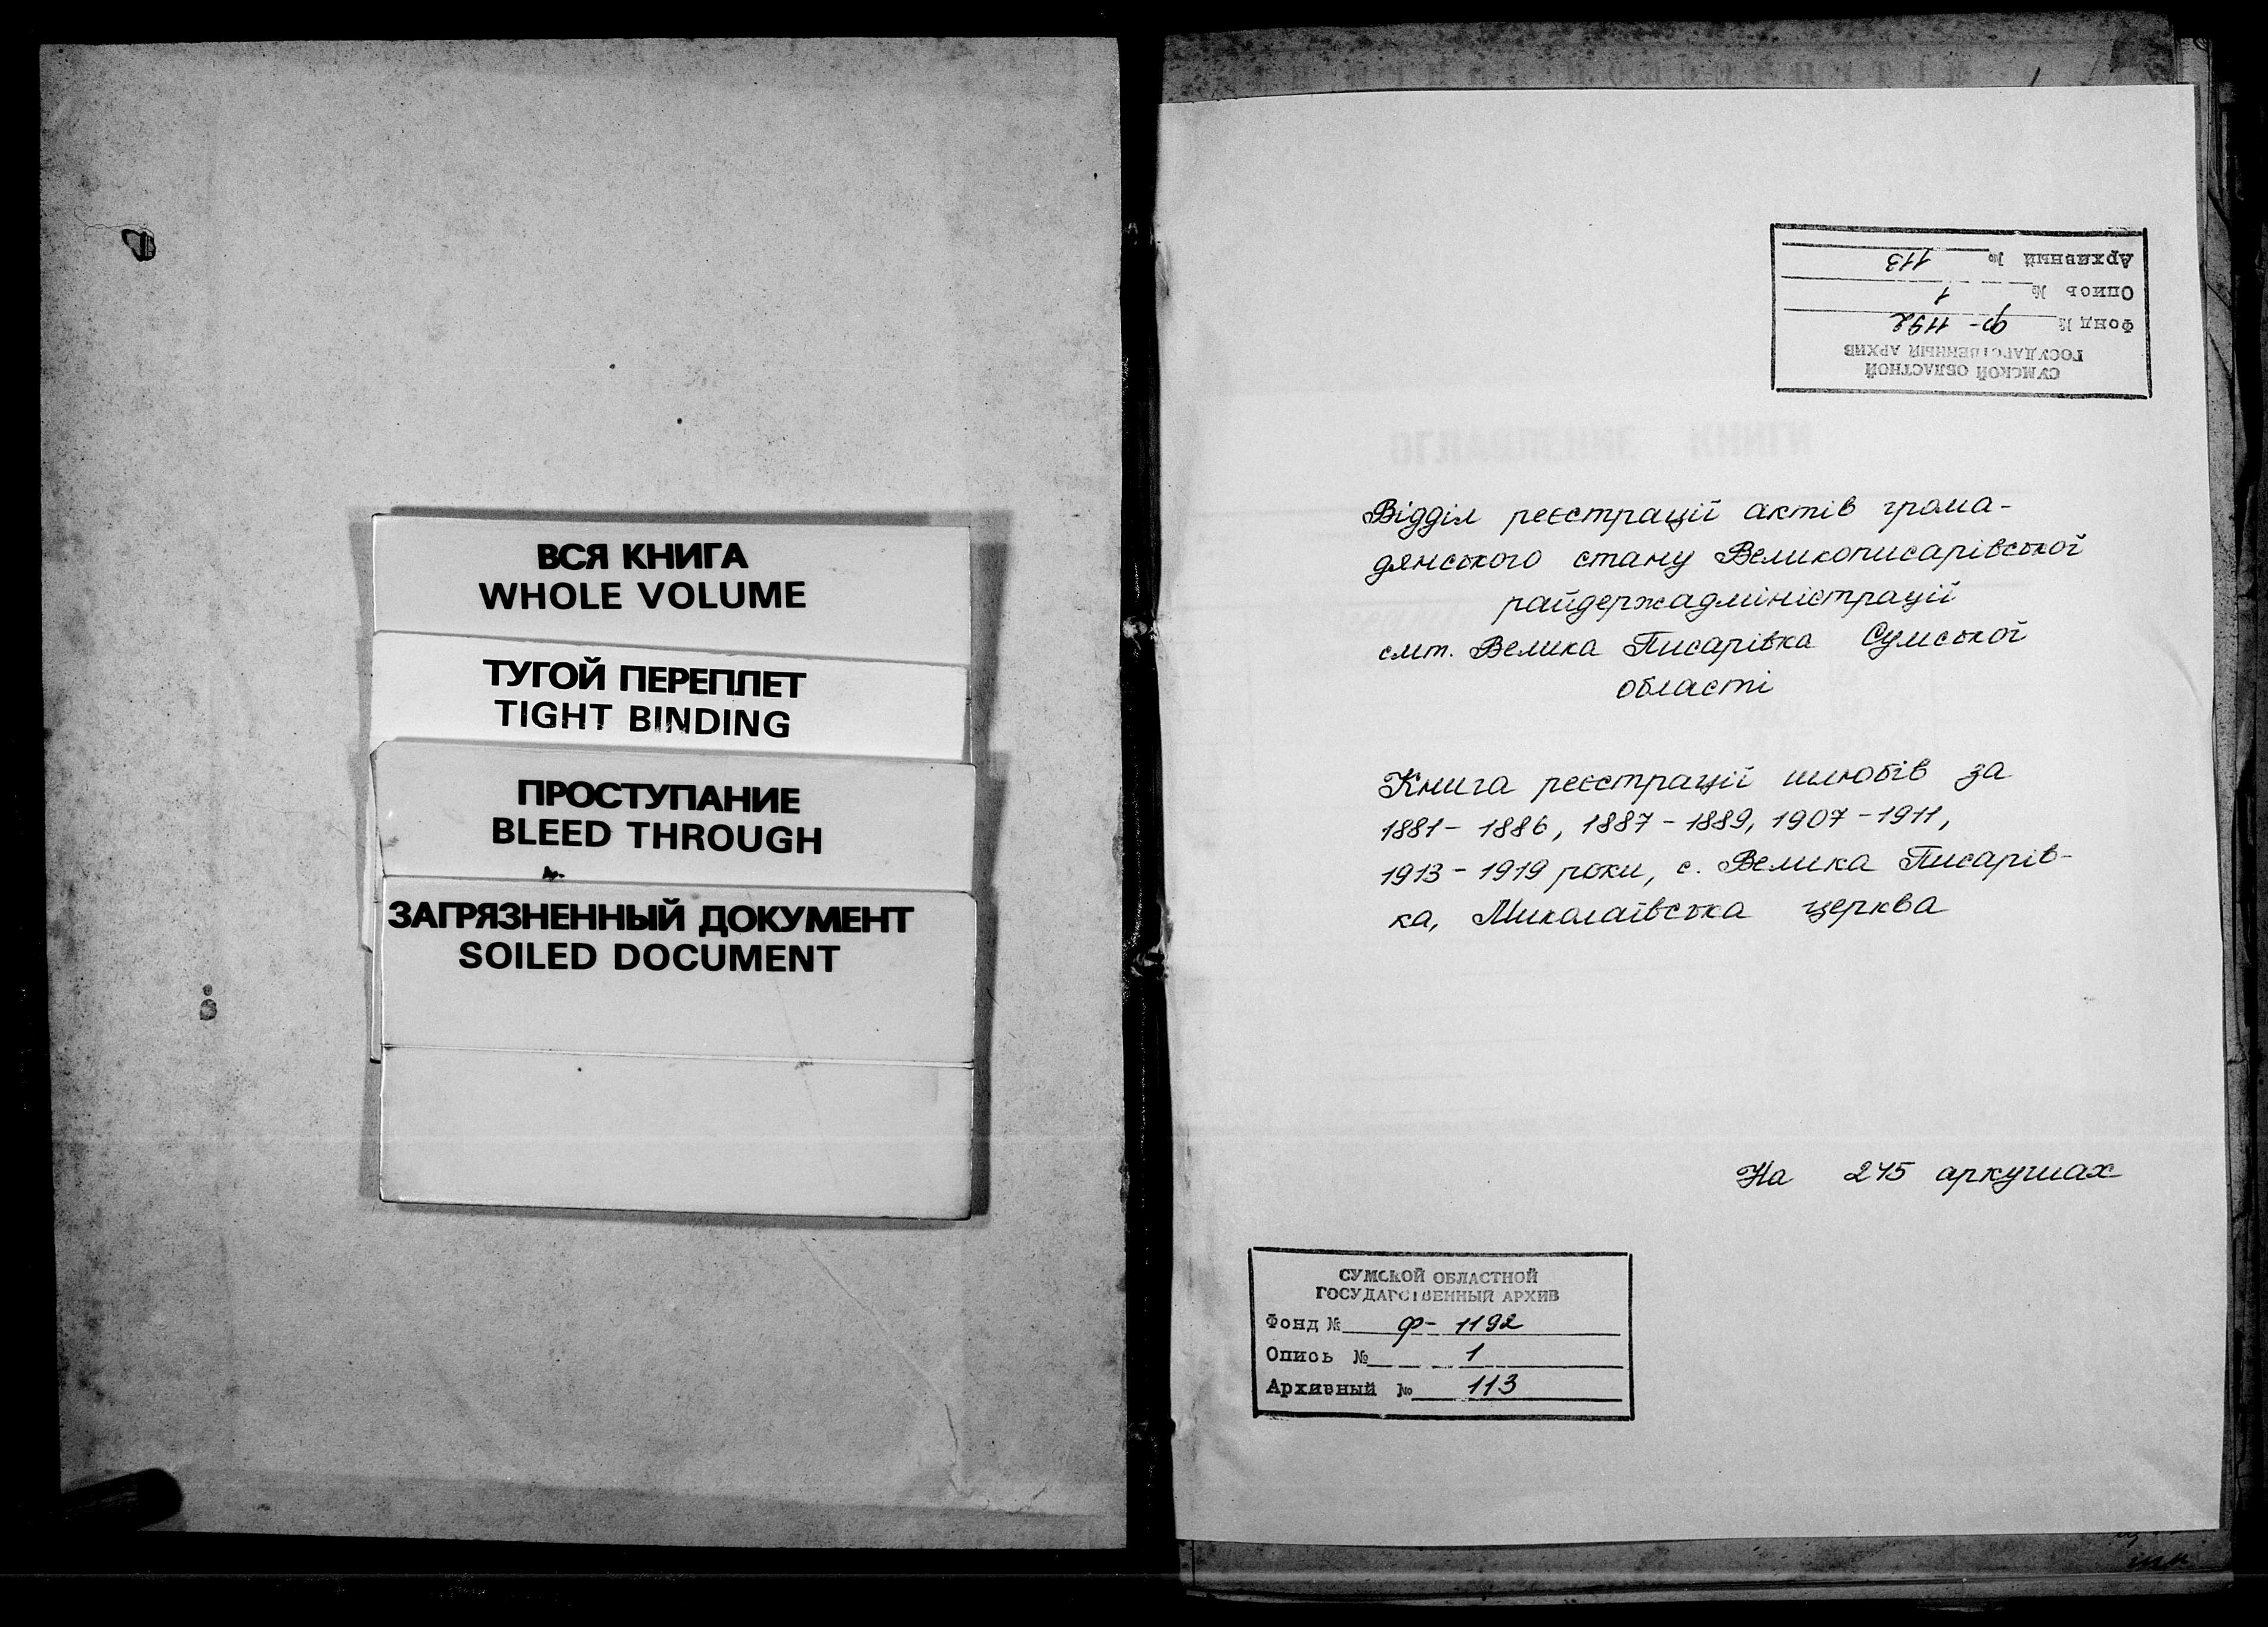 ВСЯ КНИГА
WHOLE VOLUME
ТУГОЙ ПЕРЕПЛЕТ
TIGHT BINDING
ПРОСТУПАНИЕ
BLEED THROUGH
ЗАГРЯЗНЕННЫЙ ДОКУМЕНТ
SOILED DOCUMENT
СУМСКОЙ ОБЛАСТНОЙ
ГОСУДАРСТВЕННЫЙ АРХИВ
Фонд № Ф- 1192
Опись № 1
Архивный № 113
ОГЛАВЛЕНИЕ КНИГИ
Відділ реєстрації актів грома-
дянського стану Великописарівської
райдержадміністрації
смт. Велика Писарівка Сумської
області
Книга реєстрації шлюбів за
1881- 1886, 1887-1889, 1907-1911,
1913-1919 роки, с. Велика Писарів-
ка, Миколаївська церква
На 245 аркушах
СУМСКОЙ ОБЛАСТНОЙ
ГОСУДАРСТВЕННЫЙ АРХИВ
Фонд № Ф- 1192
Опись № 1
Архивный № 113